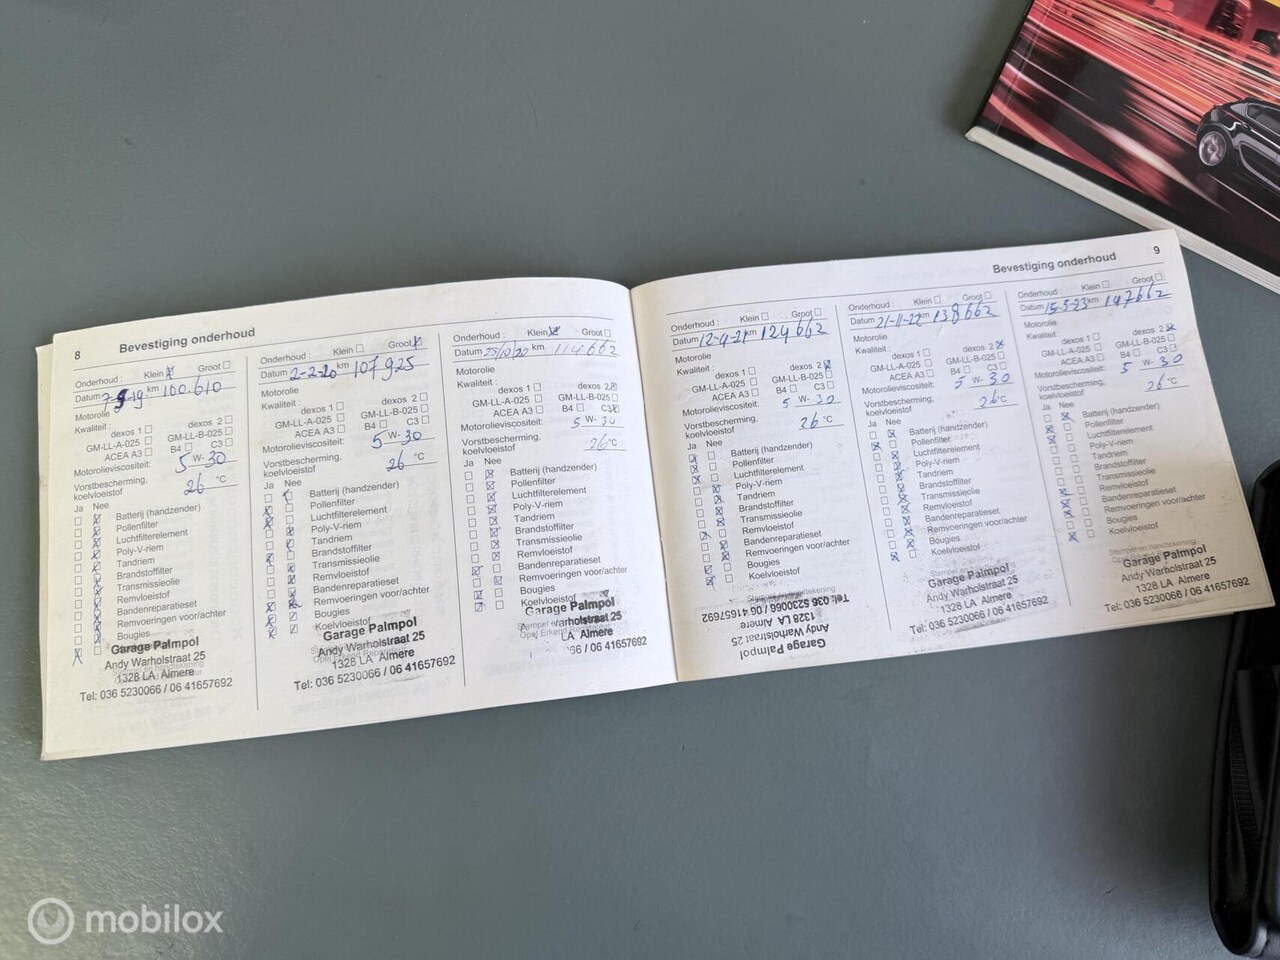 8 Bevestiging onderhoud
Onderhoud : Klein Groot
Datum km 100.610
Motorolie
Kwaliteit : dexos 1 dexos 2
GM-LL-A-025 GM-LL-B-025
ACEA A3 B4 C3
Motorolieviscositeit: 5 W- 30
Vorstbescherming, koelvloeistof 26 °C
Ja Nee
Batterij (handzender)
Pollenfilter
Luchtfilterelement
Poly-V-riem
Tandriem
Brandstoffilter
Transmissieolie
Remvloeistof
Bandenreparatieset
Remvoeringen voor/achter
Bougies
Garage Palmpol
Andy Warholstraat 25
1328 LA Almere
Tel: 036 5230066 / 06 41657692
Onderhoud : Klein Groot
Datum 2-2-20 km 107925
Motorolie
Kwaliteit : dexos 1 dexos 2
GM-LL-A-025 GM-LL-B-025
ACEA A3 B4 C3
Motorolieviscositeit: 5 W- 30
Vorstbescherming, koelvloeistof 26 °C
Ja Nee
Batterij (handzender)
Pollenfilter
Luchtfilterelement
Poly-V-riem
Tandriem
Brandstoffilter
Transmissieolie
Remvloeistof
Bandenreparatieset
Remvoeringen voor/achter
Bougies
Koelvloeistof
Garage Palmpol
Andy Warholstraat 25
1328 LA Almere
Tel: 036 5230066 / 06 41657692
Onderhoud : Klein Groot
Datum 25/10/20 km 114662
Motorolie
Kwaliteit : dexos 1 dexos 2
GM-LL-A-025 GM-LL-B-025
ACEA A3 B4 C3
Motorolieviscositeit: 5 W- 30
Vorstbescherming, koelvloeistof 26 °C
Ja Nee
Batterij (handzender)
Pollenfilter
Luchtfilterelement
Poly-V-riem
Tandriem
Brandstoffilter
Transmissieolie
Remvloeistof
Bandenreparatieset
Remvoeringen voor/achter
Bougies
Koelvloeistof
Garage Palmpol
LA Almere
66 / 06 41657692
Bevestiging onderhoud 9
Onderhoud : Klein Groot
Datum km 124662
Motorolie
Kwaliteit : dexos 1 dexos 2
GM-LL-A-025 GM-LL-B-025
ACEA A3 B4 C3
Motorolieviscositeit: 5 W- 30
Vorstbescherming, koelvloeistof 26 °C
Ja Nee
Batterij (handzender)
Pollenfilter
Luchtfilterelement
Poly-V-riem
Tandriem
Brandstoffilter
Transmissieolie
Remvloeistof
Bandenreparatieset
Remvoeringen voor/achter
Bougies
Koelvloeistof
Garage Palmpol
Andy Warholstraat 25
1328 LA Almere
Tel: 036 5230066 / 06 41657692
Onderhoud : Klein Groot
Datum 21-11-22 km 138662
Motorolie
Kwaliteit : dexos 1 dexos 2
GM-LL-A-025 GM-LL-B-025
ACEA A3 B4 C3
Motorolieviscositeit: 5 W- 30
Vorstbescherming, koelvloeistof 26 °C
Ja Nee
Batterij (handzender)
Pollenfilter
Luchtfilterelement
Poly-V-riem
Tandriem
Brandstoffilter
Transmissieolie
Remvloeistof
Bandenreparatieset
Remvoeringen voor/achter
Bougies
Koelvloeistof
Garage Palmpol
Andy Warholstraat 25
1328 LA Almere
Tel: 036 5230066 / 06 41657692
Onderhoud : Klein Groot
Datum 15-5-23 km 147662
Motorolie
Kwaliteit : dexos 1 dexos 2
GM-LL-A-025 GM-LL-B-025
ACEA A3 B4 C3
Motorolieviscositeit: 5 W- 30
Vorstbescherming, koelvloeistof 26 °C
Ja Nee
Batterij (handzender)
Pollenfilter
Luchtfilterelement
Poly-V-riem
Tandriem
Brandstoffilter
Transmissieolie
Remvloeistof
Bandenreparatieset
Remvoeringen voor/achter
Bougies
Koelvloeistof
Garage Palmpol
Andy Warholstraat 25
1328 LA Almere
Tel: 036 5230066 / 06 41657692
mobilox